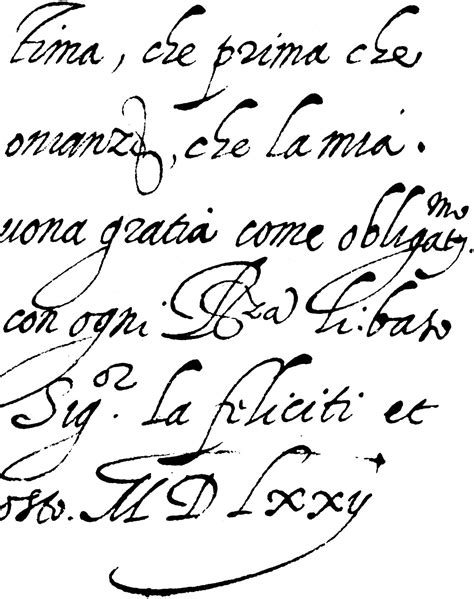 tima, che prima che
onianza, che la mia.
uona gratia come obligatmo.
con ogni Rza li: baso
Sigor. la feliciti et
osto. MDLXXV